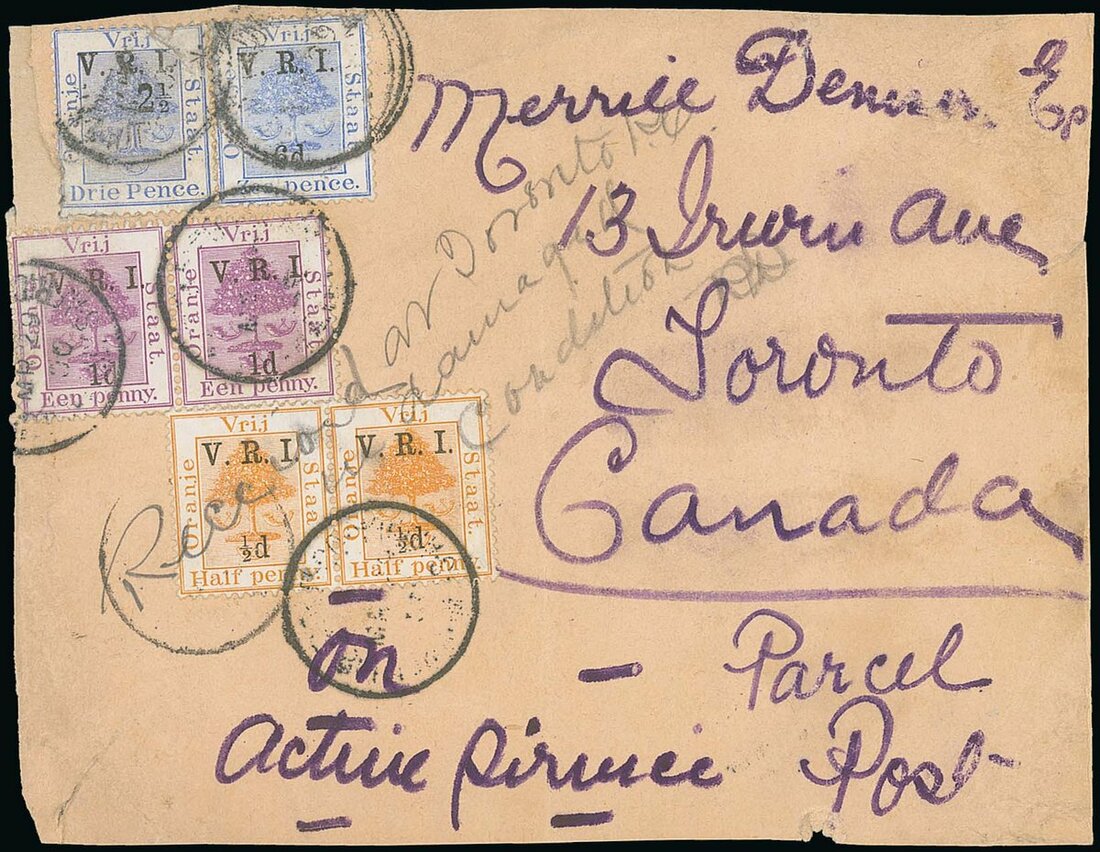 Vrij
Oranje
Staat.
V. R. I.
2½
Drie Pence.
Vrij
V. R. I.
Staat
6d
pence.
Vrij
V. R. I.
Staat.
1d
Een penny.
Vrij
Oranje
Staat.
V. R. I.
1d
Een penny.
Vrij
Oranje
Staat
V. R. I.
½d
Half penny.
Vrij
Oranje
Staat.
V. R. I.
½d
Half penny.
MR 20
Merrill Denison Esq
13 Irwin Ave
Toronto
Canada
Parcel
Post
on
Active Sirvice
Received at Toronto P.O.
in Damaged
Condition